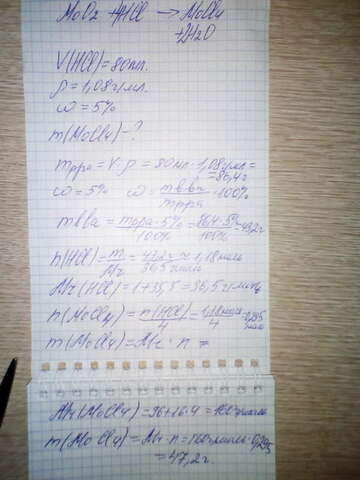 MoO2 + 4HCl → MoCl4
+ 2H2O
V(HCl) = 80мл.
ρ = 1,08 г/мл.
ω = 5%
m(MoCl4) - ?
mрра = V · ρ = 80мл · 1,08 г/мл =
= 86,4 г
ω = 5% ω = mвва / mрра · 100%
mвва = mрра · 5% / 100% = 86,4 · 5% / 100% = 43,2 г
n(HCl) = m / Mr = 43,2 г / 36,5 г/моль = 1,18 моль
Mr(HCl) = 1 + 35,5 = 36,5 г/моль
n(MoCl4) = n(HCl) / 4 = 1,18 моль / 4 = 0,295
моль
m(MoCl4) = Mr · n =
Mr(MoCl4) = 96 + 16 · 4 = 160 г/моль
m(MoCl4) = Mr · n = 160 г/моль · 0,295
= 47,2 г.